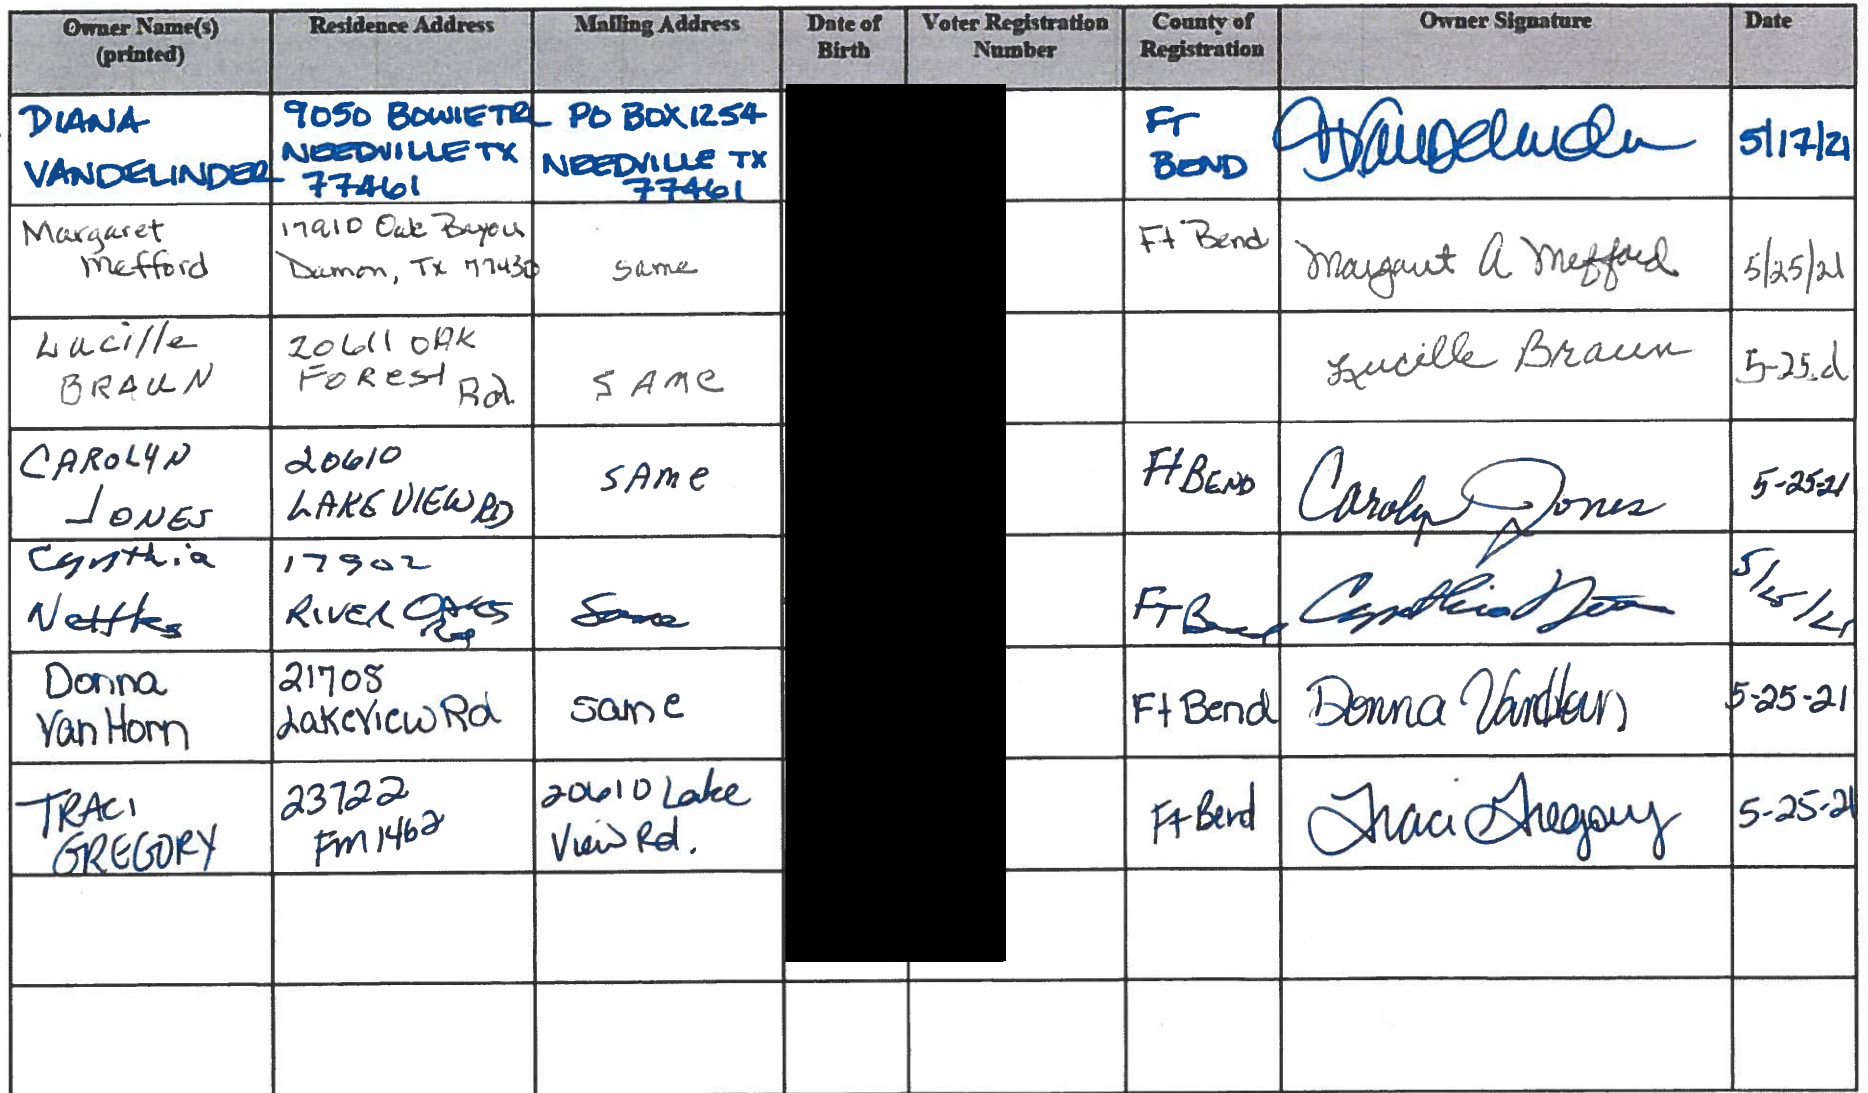 Owner Name(s) (printed) Residence Address Mailing Address Date of Birth Voter Registration Number County of Registration Owner Signature Date
DIANA VANDELINDER 9050 BOWIE TRL NEEDVILLE TX 77461 PO BOX 1254 NEEDVILLE TX 77461 FT BEND 5/17/21
Margaret Mefford 17910 Oak Bayou Damon, TX 77430 same Ft Bend Margaret A Mefford 5/25/21
Lucille BRAUN 20611 OAK FOREST Rd. SAME Lucille Braun 5-25-21
CAROLYN JONES 20610 LAKE VIEW RD SAME Ft BEND Carolyn Jones 5-25-21
Cynthia Nettles 17902 RIVER OAKS Same FT Cynthia 5/25/21
Donna Van Horn 21708 LakeView Rd same Ft Bend Donna VanHorn 5-25-21
TRACI GREGORY 23722 Fm 1462 20610 Lake View Rd. Ft Bend Traci Gregory 5-25-21